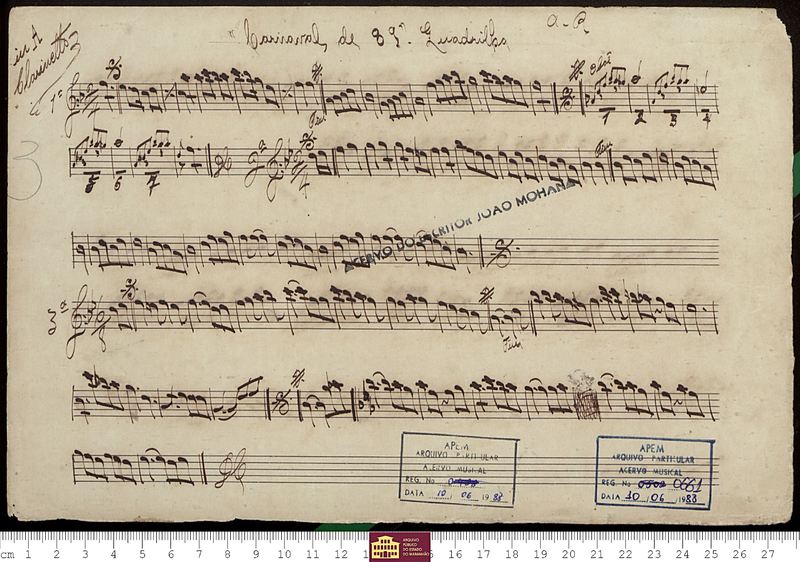 A. R.
de 8ª. Quadrilha
in A
Clarinetto
1ª
Fim
1 2 3 4
5 6 7
2ª
Fim
3
ACERVO DO ESCRITOR JOÃO MOHANA
3ª
Fim
APEM
ARQUIVO PARTICULAR
ACERVO MUSICAL
REG. No
DATA 10 / 06 / 1988
APEM
ARQUIVO PARTICULAR
ACERVO MUSICAL
REG. No 0661
DATA 10 / 06 / 1988
cm 1 2 3 4 5 6 7 8 9 10 11 12 15 16 17 18 19 20 21 22 23 24 25 26 27
ARQUIVO
PÚBLICO
DO ESTADO
DO MARANHÃO